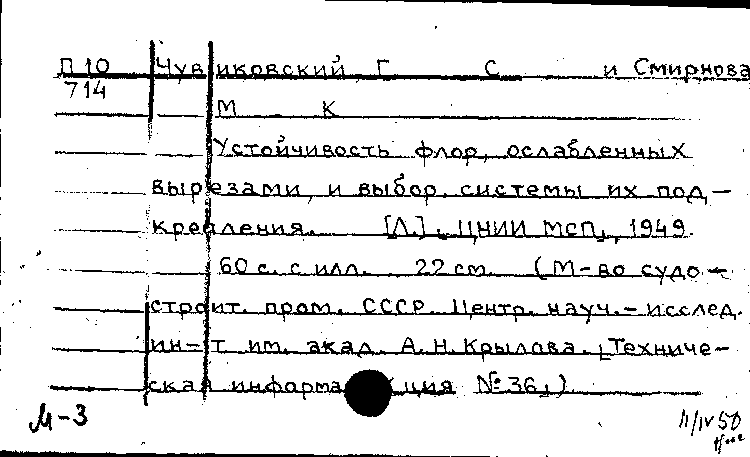 П 10 Чувиковский, Г С и Смирнова
714
М К
Устойчивость флор, ослабленных
вырезами, и выбор системы их под-
крепления. [Л.], ЦНИИ МСП, 1949.
60 с. с илл. 22 см. (М-во судо-
строит. пром. СССР. Центр. науч.-исслед.
ин-т им. акад. А.Н.Крылова. Техниче-
ская информация №36)
М-3
11/IV 50